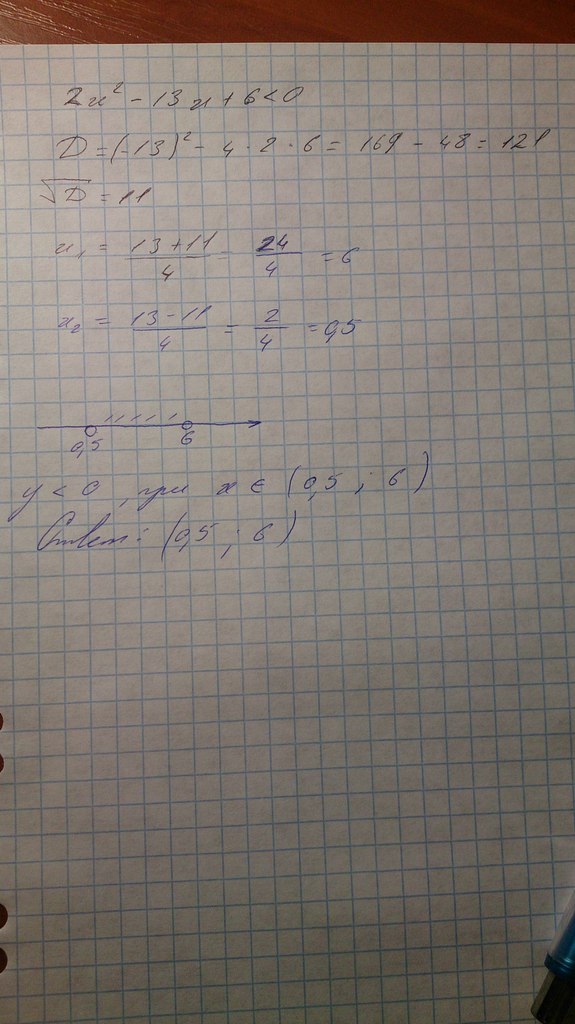 2x² - 13x + 6 < 0
D = (-13)² - 4 · 2 · 6 = 169 - 48 = 121
√D = 11
x₁ = (13 + 11)/4 = 24/4 = 6
x₂ = (13 - 11)/4 = 2/4 = 0,5
0,5 6
y < 0, при x ∈ (0,5 ; 6)
Ответ: (0,5 ; 6)